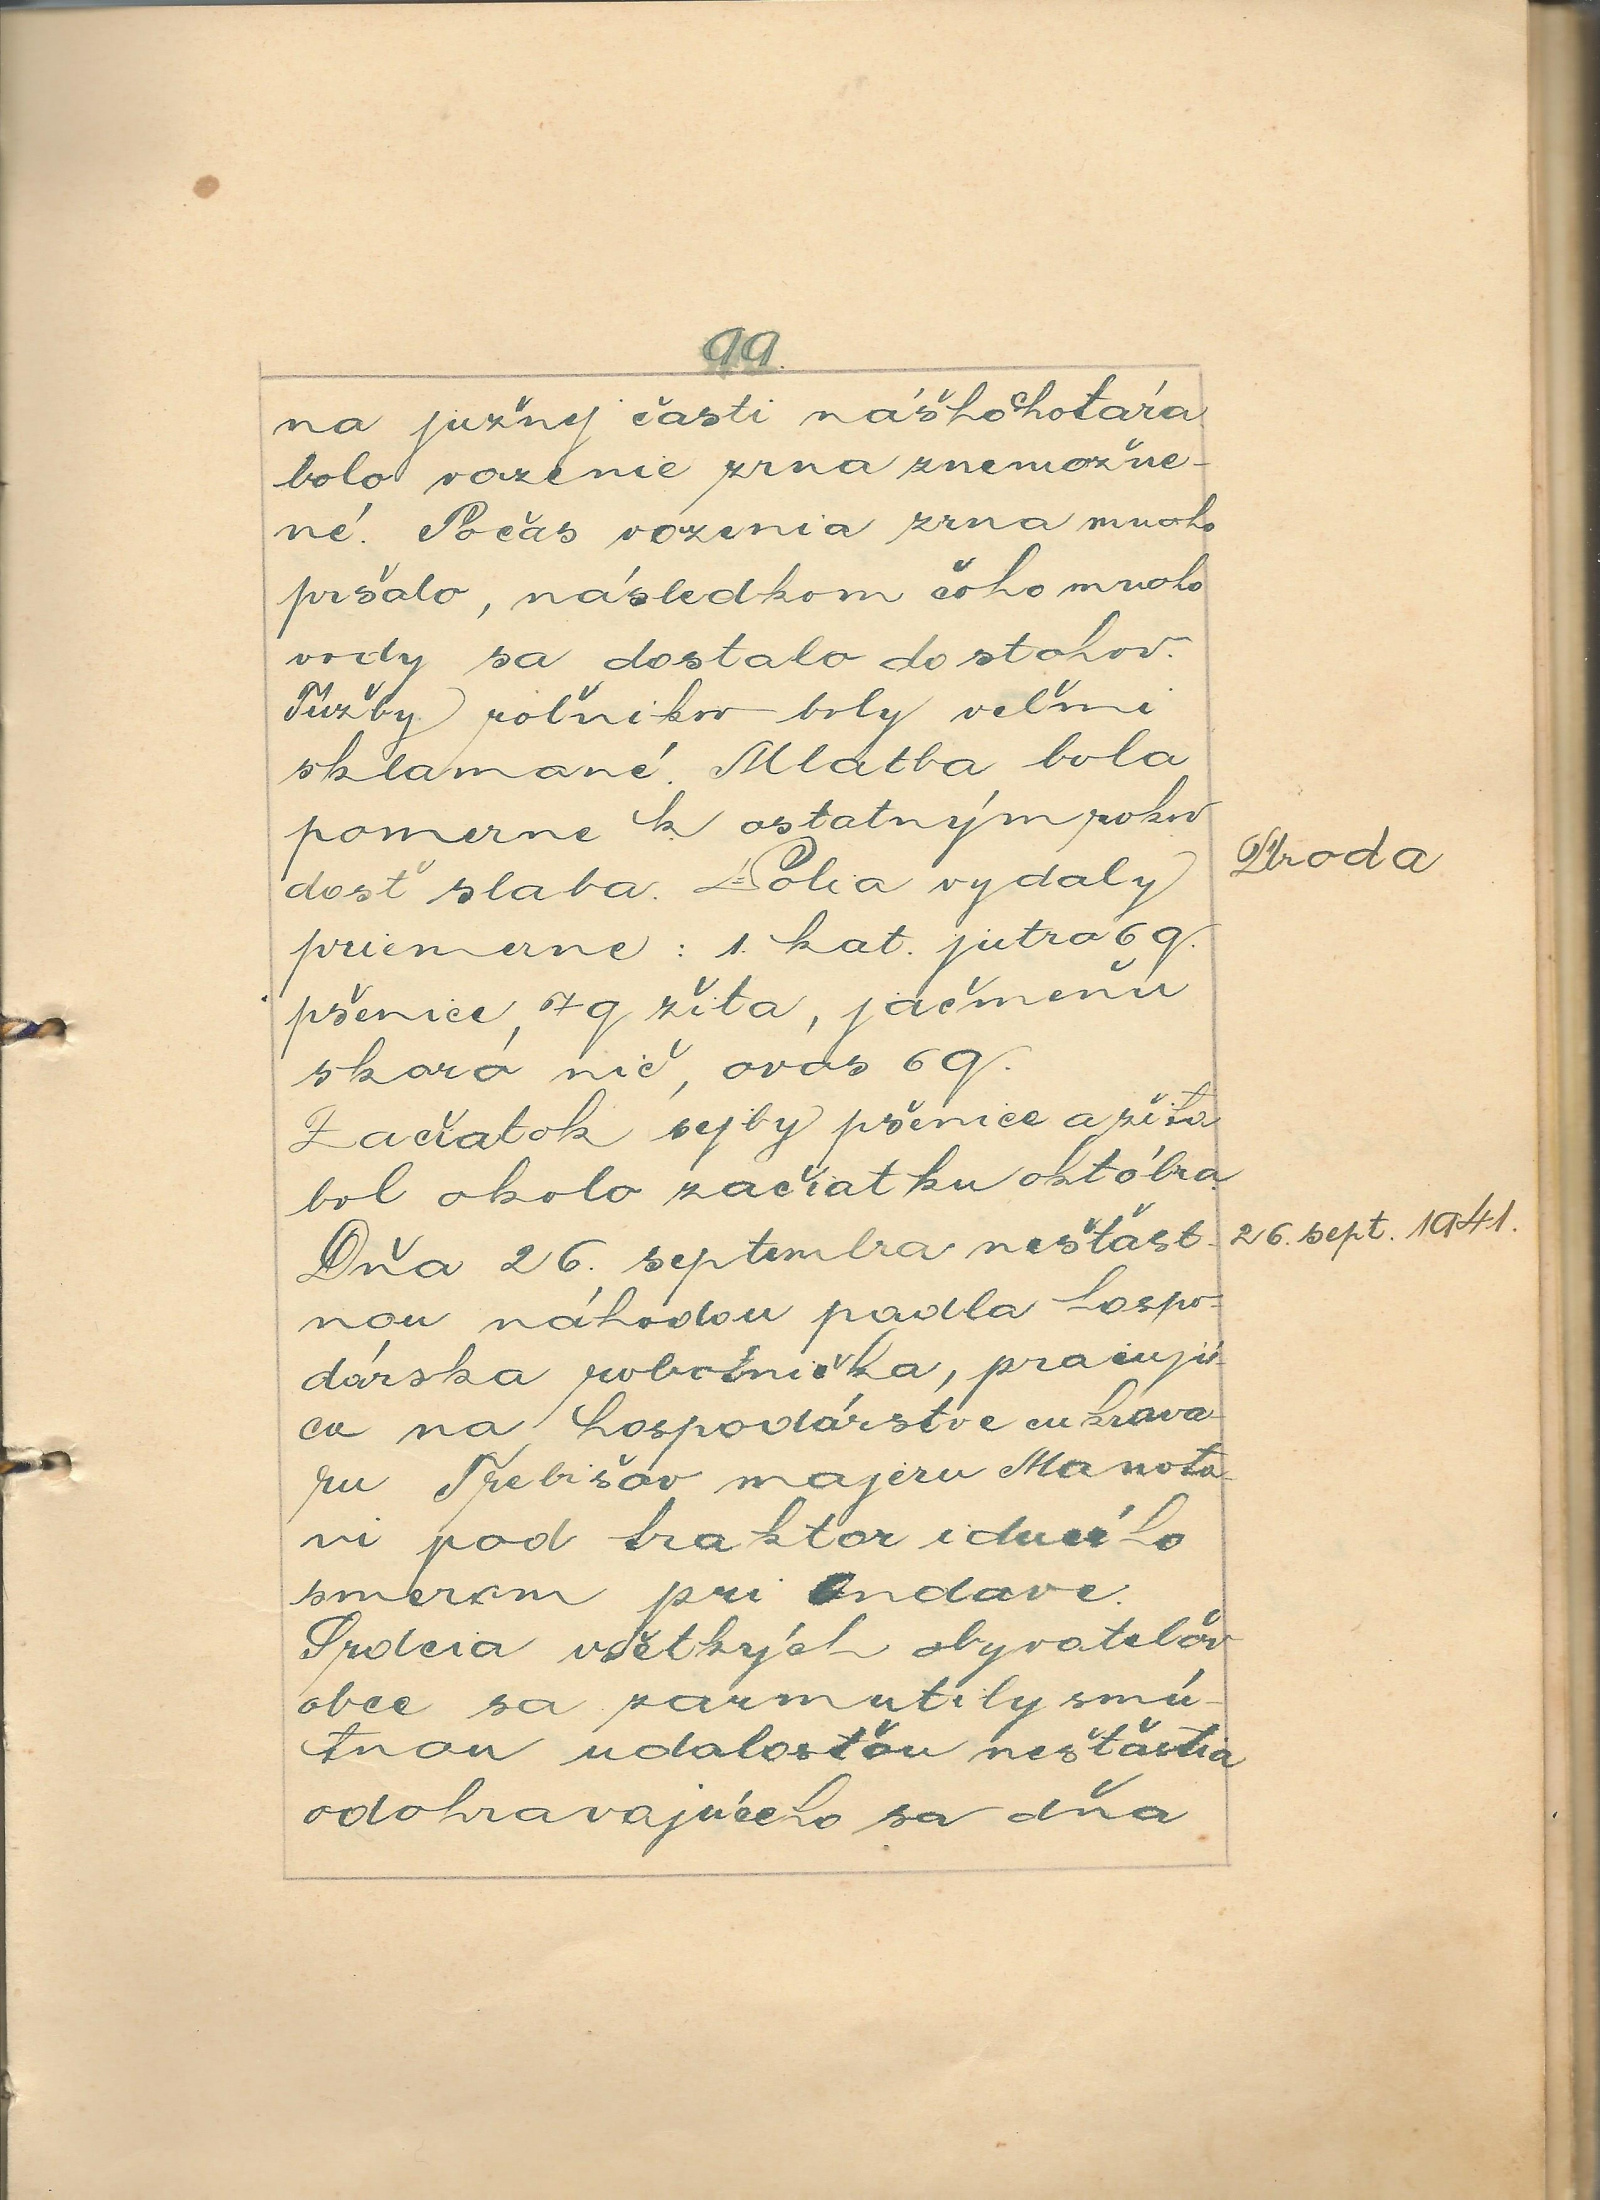 99.
na južnej časti nášho chotára
bolo vozenie zrna znemožne-
né. Počas vozenia zrna mnoho
pršalo, následkom čoho mnoho
vody sa dostalo do stohov.
Túžby roľnikov boly veľmi
sklamané. Mlatba bola
pomerne k ostatným rokov
dosť slaba. Polia vydaly
Úroda
priemerne : 1. kat. jutro 6 q.
pšenice, 7 q žita, jačmeňu
skoro nič, ovos 6 q.
Začiatok sejby pšenice a žita
bol okolo začiatku októbra.
Dňa 26. septembra nešťast-
26. sept. 1941.
nou náhodou padla hospo-
dárska robotnička, pracujú-
ca na hospodárstve cukrova-
ru Trebišov majeru
pod traktor iduceho
smerom pri Ondave.
Srdcia všetkých obyvateľov
obce sa zarmutily smú-
tnou udalosťou nešťastia
odohravajúceho sa dňa